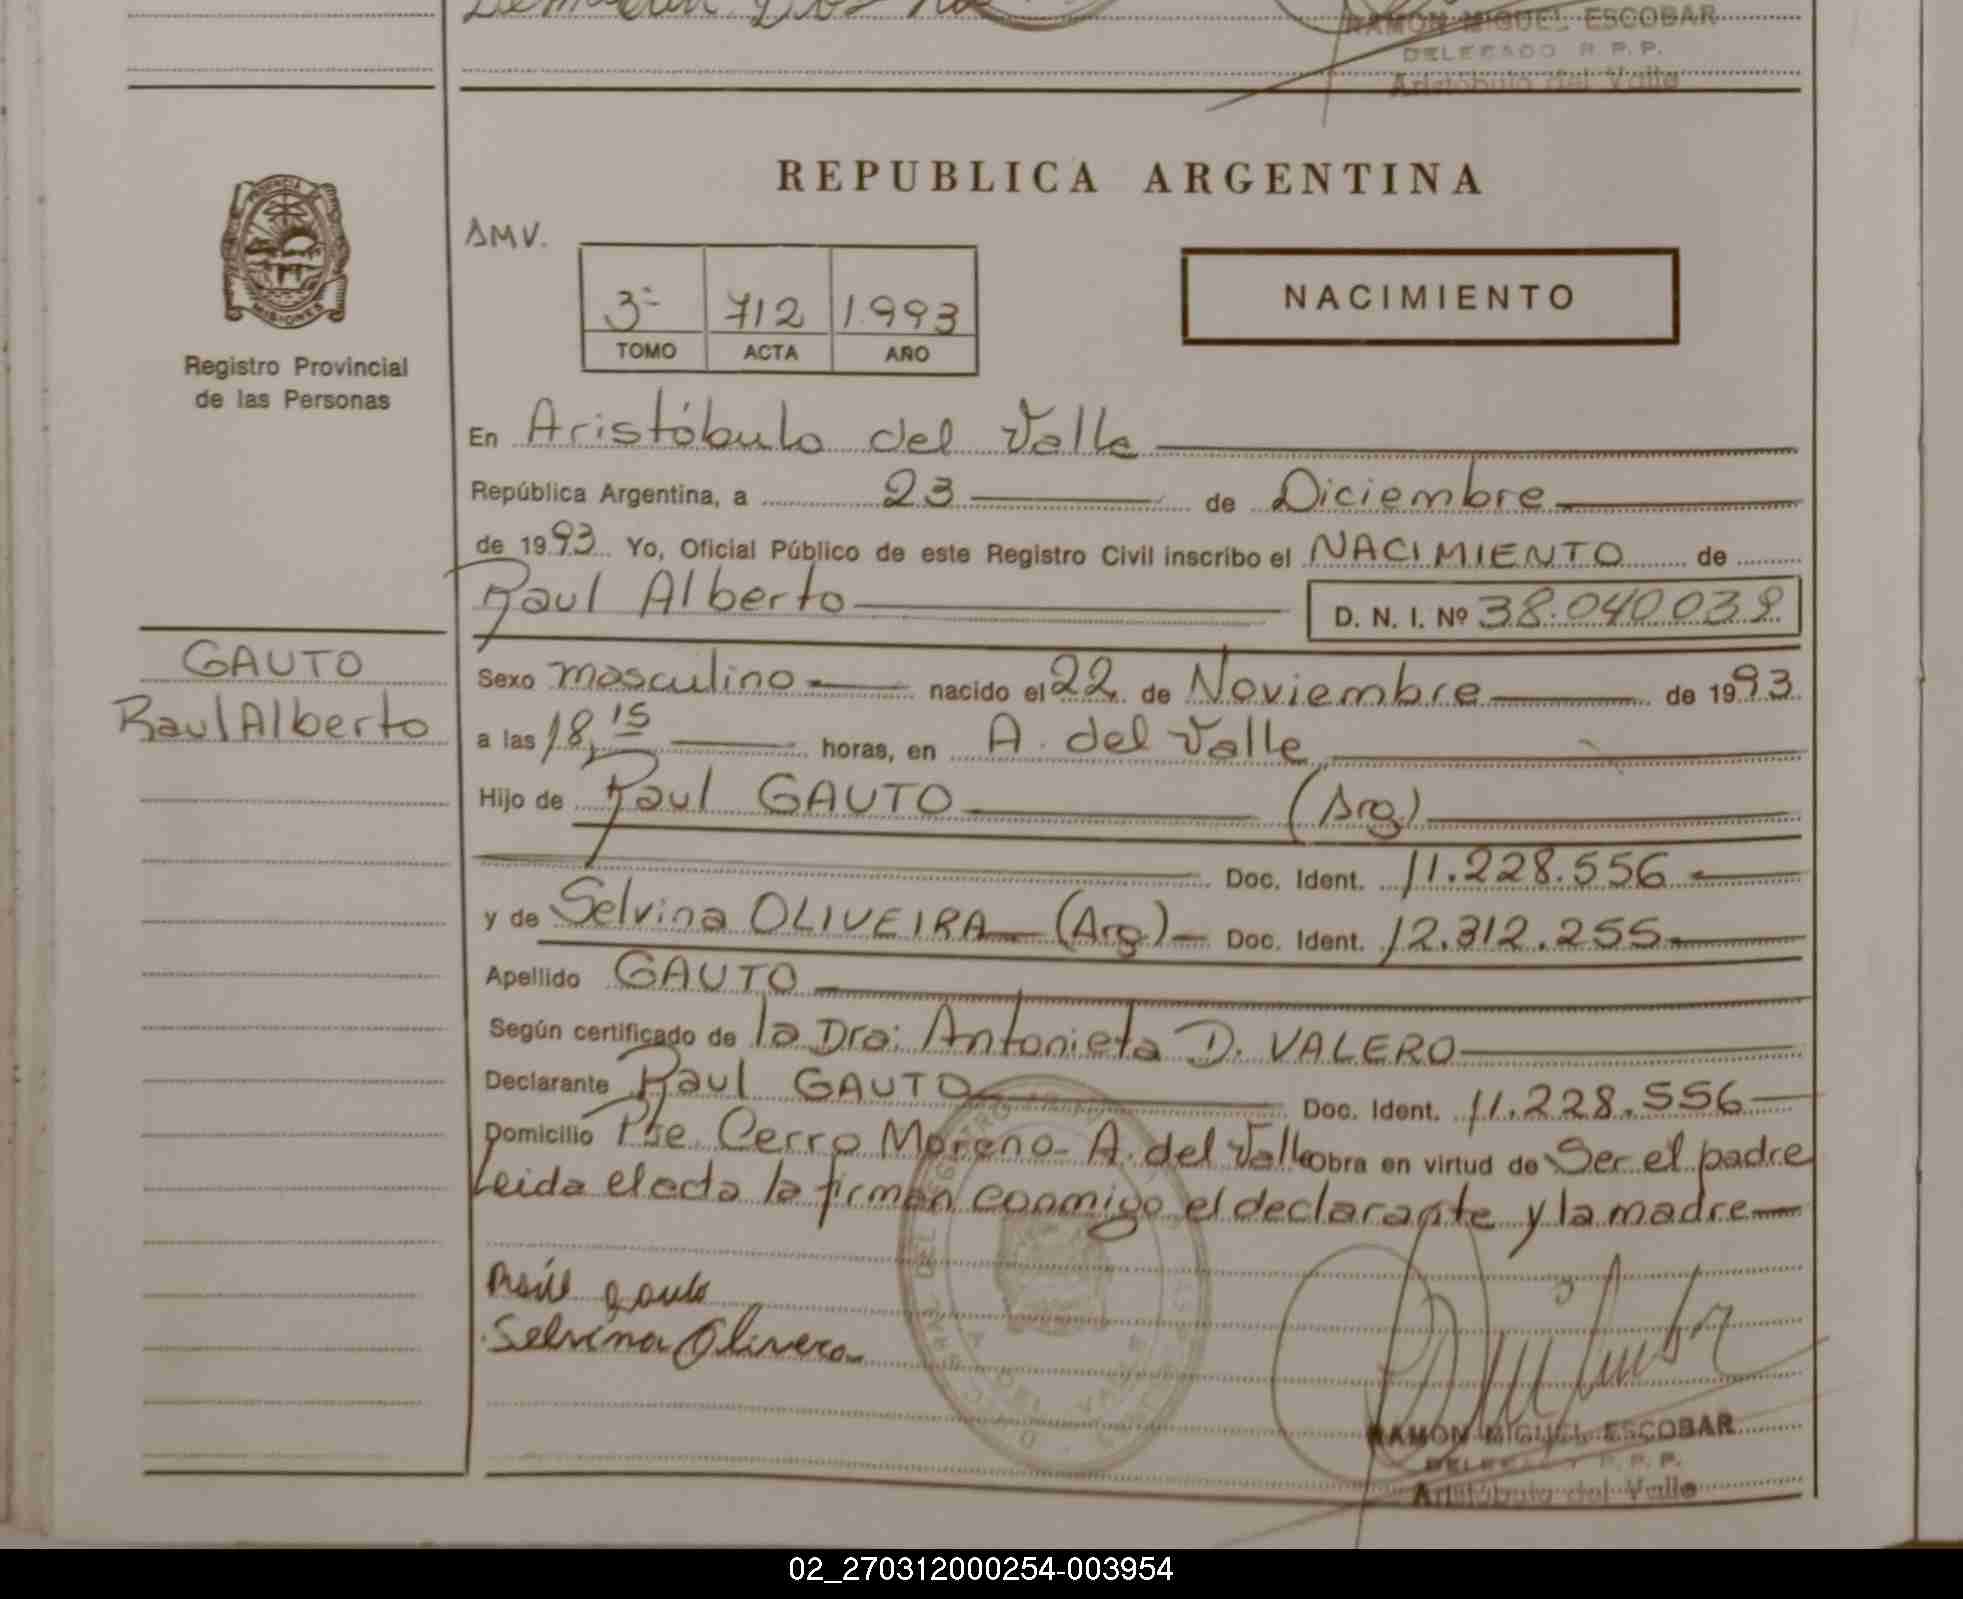 RAMON MIGUEL ESCOBAR
DELEGADO R. P. P.
Aristóbulo del Valle
REPUBLICA ARGENTINA
PROVINCIA DE
MISIONES
Registro Provincial
de las Personas
AMV.
3º 712 1.993
TOMO ACTA AÑO
NACIMIENTO
En Aristóbulo del Valle
República Argentina, a 23 de Diciembre
de 1993 Yo, Oficial Público de este Registro Civil inscribo el NACIMIENTO de
Raul Alberto D. N. I. Nº 38.040.039
GAUTO
Raul Alberto
Sexo masculino nacido el 22 de Noviembre de 1993
a las 18,15 horas, en A. del Valle
Hijo de Raul GAUTO (Arg)
Doc. Ident. 11.228.556
y de Selvina OLIVEIRA (Arg) Doc. Ident. 12.312.255
Apellido GAUTO
Según certificado de la Dra: Antonieta D. VALERO
Declarante Raul GAUTO Doc. Ident. 11.228.556
Domicilio Pje Cerro Moreno - A. del Valle obra en virtud de Ser el padre
Leida el acta la firman conmigo el declarante y la madre
Raúl gauto
Selvina Olivera
RAMON MIGUEL ESCOBAR
DELEGADO R. P. P.
Aristóbulo del Valle
02_270312000254-003954